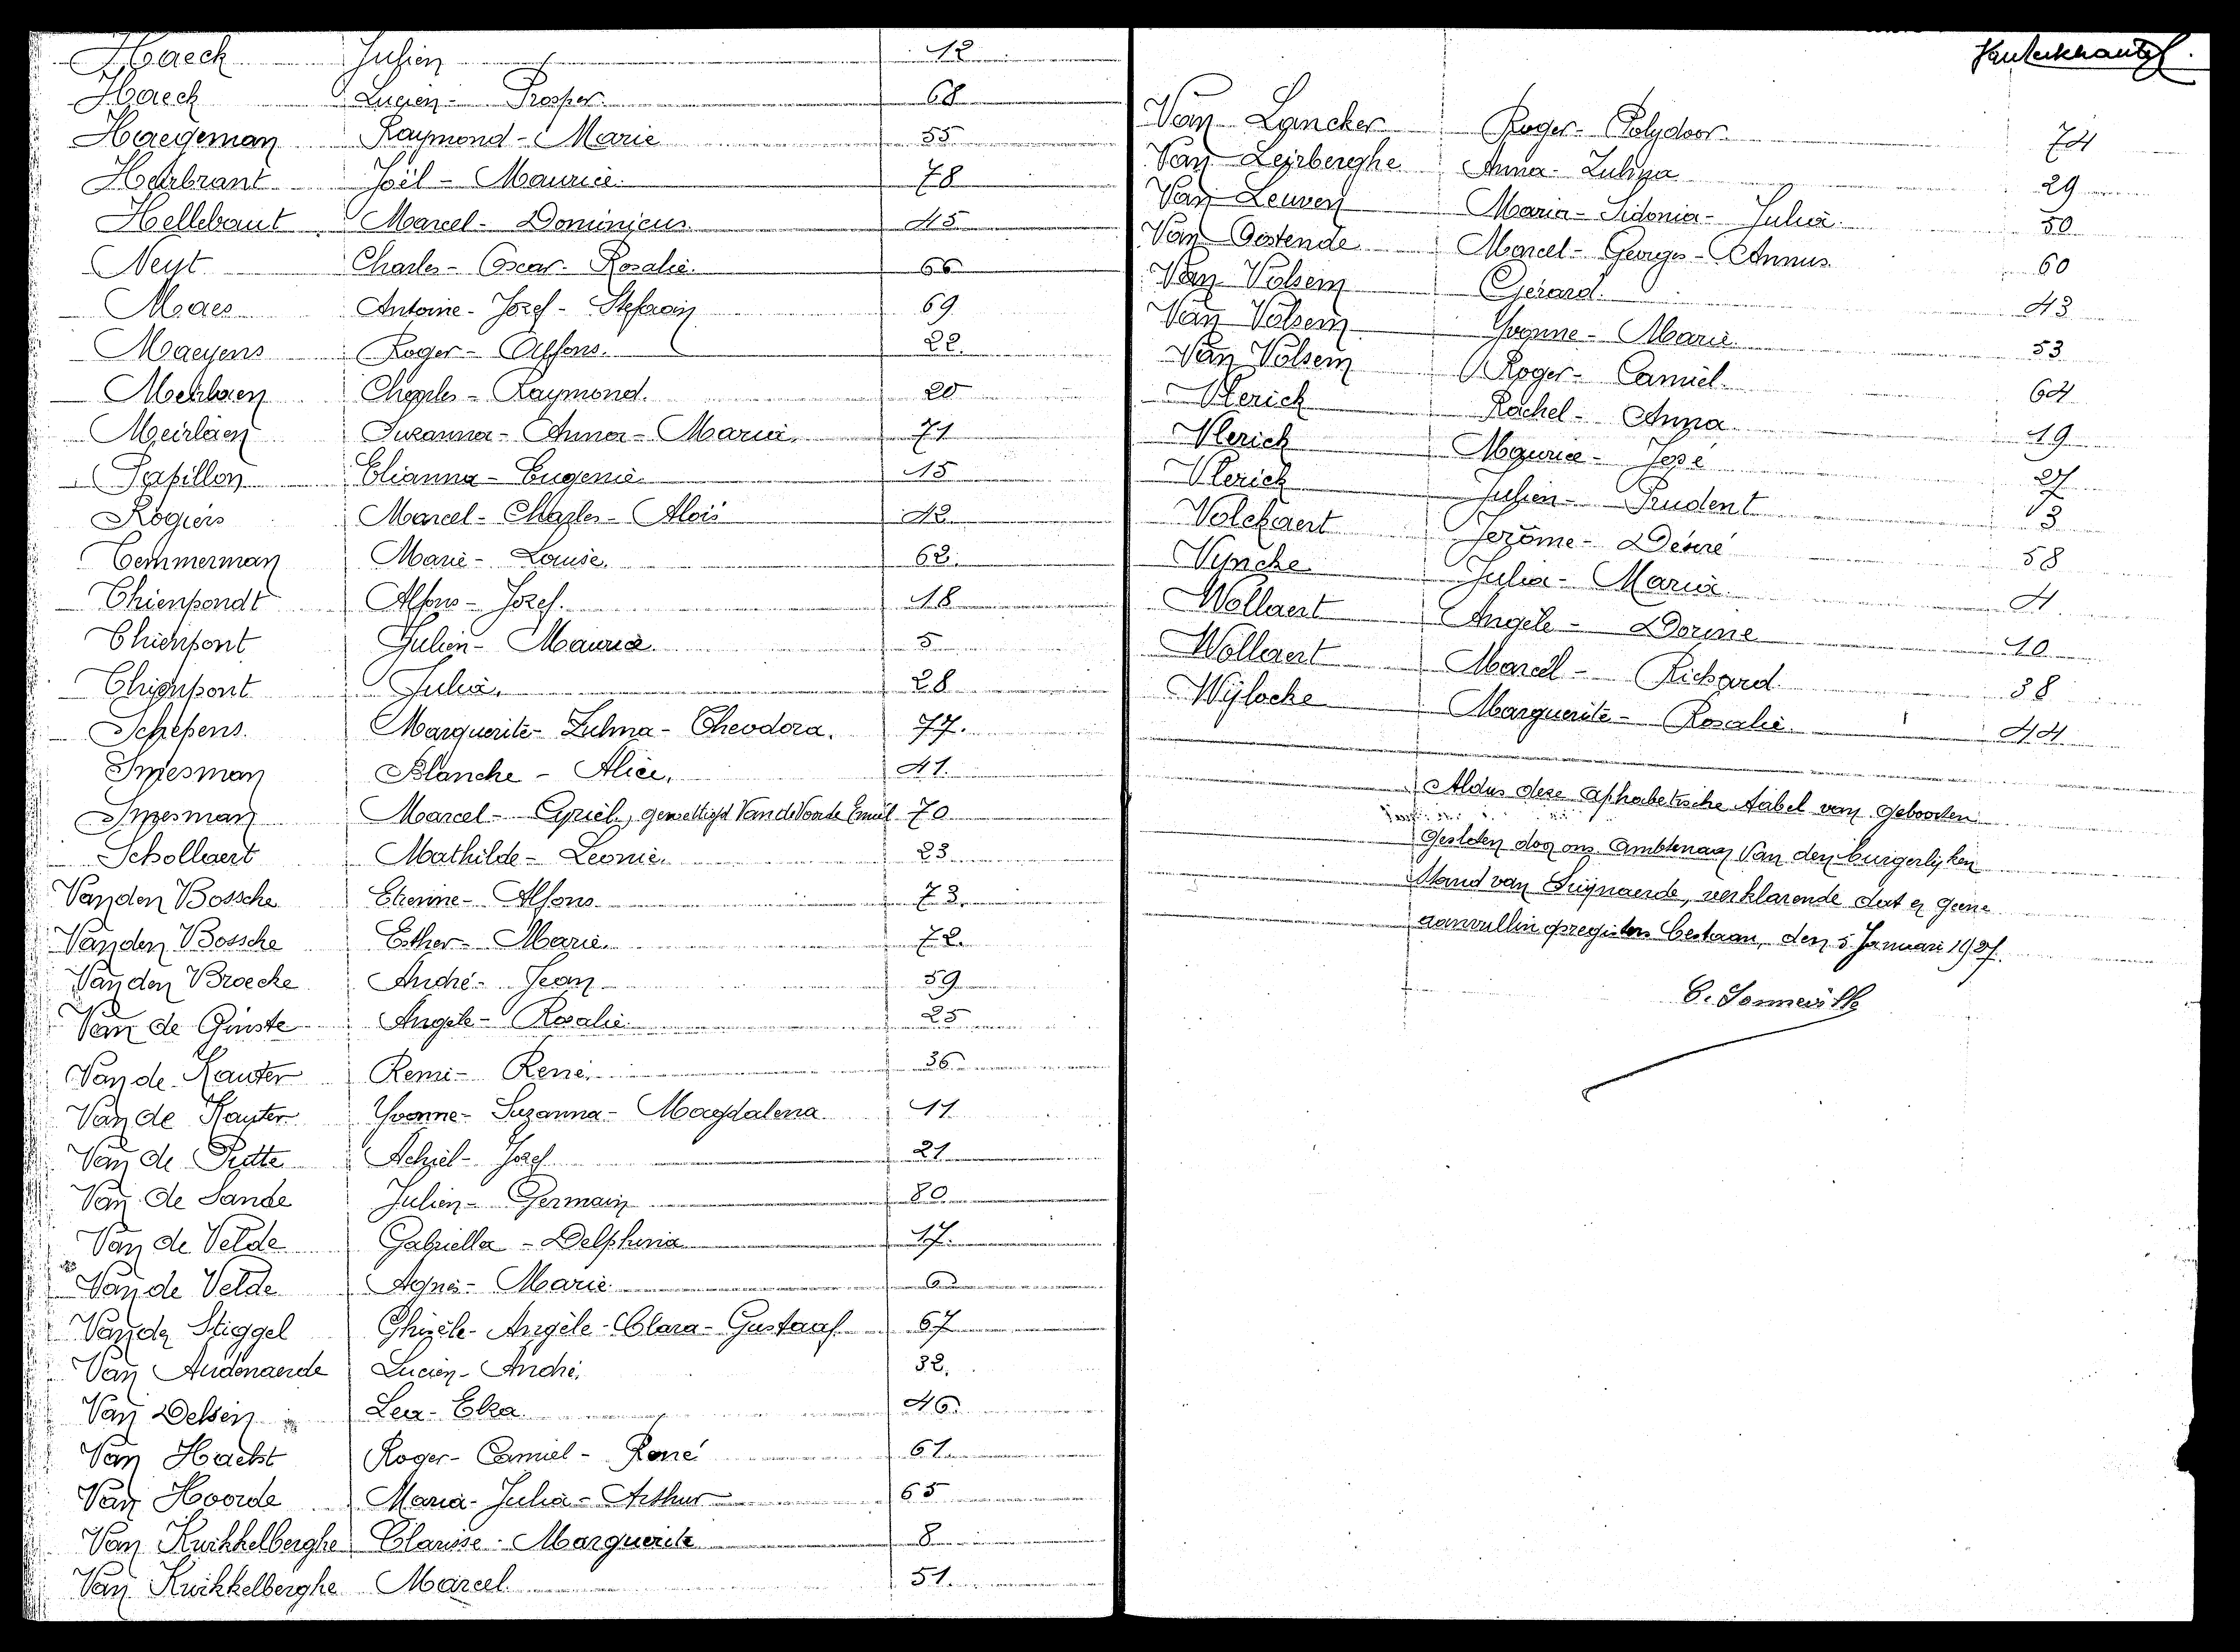 Haeck Julien 12
Haeck Lucien - Prosper. 68
Haegeman Raymond - Marie 55
Haerbrant Joël - Maurice. 78
Hellebaut Marcel - Dominicus. 45
Neyt Charles - Oscar - Rosalie. 66
Maes Antoine - Jozef - Stefaan 69
Maeyens Roger - Alfons. 22.
Meirlaen Charles - Raymond. 20
Meirlaen Suzanna - Anna - Maria. 71
Papillon Elianna - Eugenie. 15
Rogiers Marcel - Charles - Alois 42
Temmerman Marie - Louise. 62.
Thienpondt Alfons - Jozef. 18
Thienpont Julien - Maurice. 5
Thienpont Julia. 28
Schepens. Marguerite - Zulma - Theodora. 77.
Smesman Blanche - Alice. 41.
Smesman Marcel - Cyriel, gewettigd Van de Voorde Emiel 70
Schollaert Mathilde - Leonie. 23
Van den Bossche Etienne - Alfons 73.
Van den Bossche Esther - Marie. 72.
Van den Broecke André - Jean 59
Van de Ginste Angèle - Rosalie. 25
Van de Kauter Remi - René. 36
Van de Kauter Yvonne - Suzanna - Magdalena 11
Van de Putte Achiel - Jozef 21
Van de Sande Julien - Germain 80
Van de Velde Gabriella - Delphina 17.
Van de Velde Agnes - Marie 6
Van der Stiggel Ghisèle - Angèle - Clara - Gustaaf 67
Van Audenaerde Lucien - André. 32.
Van Delsen Lea - Elza. 46
Van Hacht Roger - Camiel - René 61
Van Hoorde Maria - Julia - Arthur 65
Van Kwikkelberghe Clarisse - Marguerite 8
Van Kwikkelberghe Marcel 51.
Van Lancker Roger - Polydoor. 74
Van Leirberghe Anna - Zulma 29
Van Leuven Maria - Sidonia - Julia. 50
Van Oostende Marcel - Georges - 60
Van Volsem Gerard. 43
Van Volsem Yvonne - Marie. 53
Van Volsem Roger - Camiel. 64
Vlerick Rachel - Anna 19
Vlerick Maurice - José 27
Vlerick Julien - Prudent 3
Volckaert Jerôme - Desiré 58
Vyncke Julia - Maria. 4.
Wollaert Angèle - Dorine 10
Wollaert Marcel - Richard 38
Wijlocke Marguerite - Rosalie. 44
Aldus deze alphabetische tabel van geboorten
gesloten door ons ambtenaar van den burgerlijken
Stand van Svijnaerde, verklarende dat er geene
aanvullingsregisters bestaan, den 5 Januari 1927.